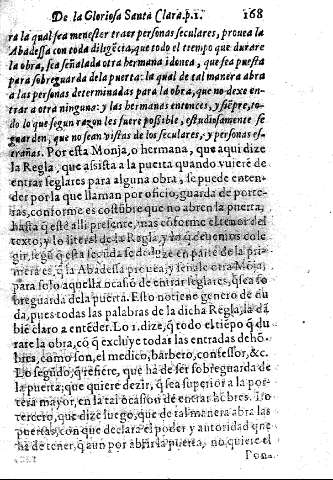 De la Gloriosa Santa Clara.p.1. 168
ra la qual sea menester traer personas seculares, prouea la
Abadessa con toda diligẽcia, que todo el tiempo que durare
la obra, sea señalada otra hermana idonea, que sea puesta
para sobreguarda de la puerta: la qual de tal manera abra
a las personas determinadas para la obra, que no dexe en-
trar otra ninguna: y las hermanas entonces, y sẽpre, to-
do lo que segun razon les fuere possible, estudiosamente se
guarden, que no sean vistas de los seculares, y personas es-
trañas. Por esta Monja, o hermana, que aqui dize
la Regla, que assista a la puerta quando vuiere de
entrar seglares para alguna obra, se puede enten-
der por la que llaman por oficio, guarda de porte-
ras, conforme es costũbre que no abren la puerta,
hasta q̃ estè alli presente, mas cõforme el tenor del
texto, y lo literal de la Regla, y lo q̃ deuemos cole
gir, segũ q̃ esta seg̃uda se deduze en parte de la pri-
mera es, q̃ la Abadessa prouea, y señale otra Mõja,
para solo aquella ocasiõ de entrar seglares, q̃ sea so
breguarda de la puerta. Esto no tiene genero de du
da, pues todas las palabras de la dicha Regla, la dã
biẽ claro a entẽder. Lo 1. dize, q̃ todo el tiẽpo q̃ du
rare la obra, cõ q̃ excluye todas las entradas de hõ-
bres, como son, el medico, barbero, confessor, &c.
Lo segũdo, q̃ refiere, que ha de ser sobreguarda de
la puerta; que quiere dezir, q̃ sea superior a la por-
tera mayor, en la tal ocasion de entrar hõbres. Lo
tercero, que dize luego, que de tal manera abra las
puertas, con que declara el poder y autoridad que
ha de tener, q̃ aun por abrir la puerta, no quiere el